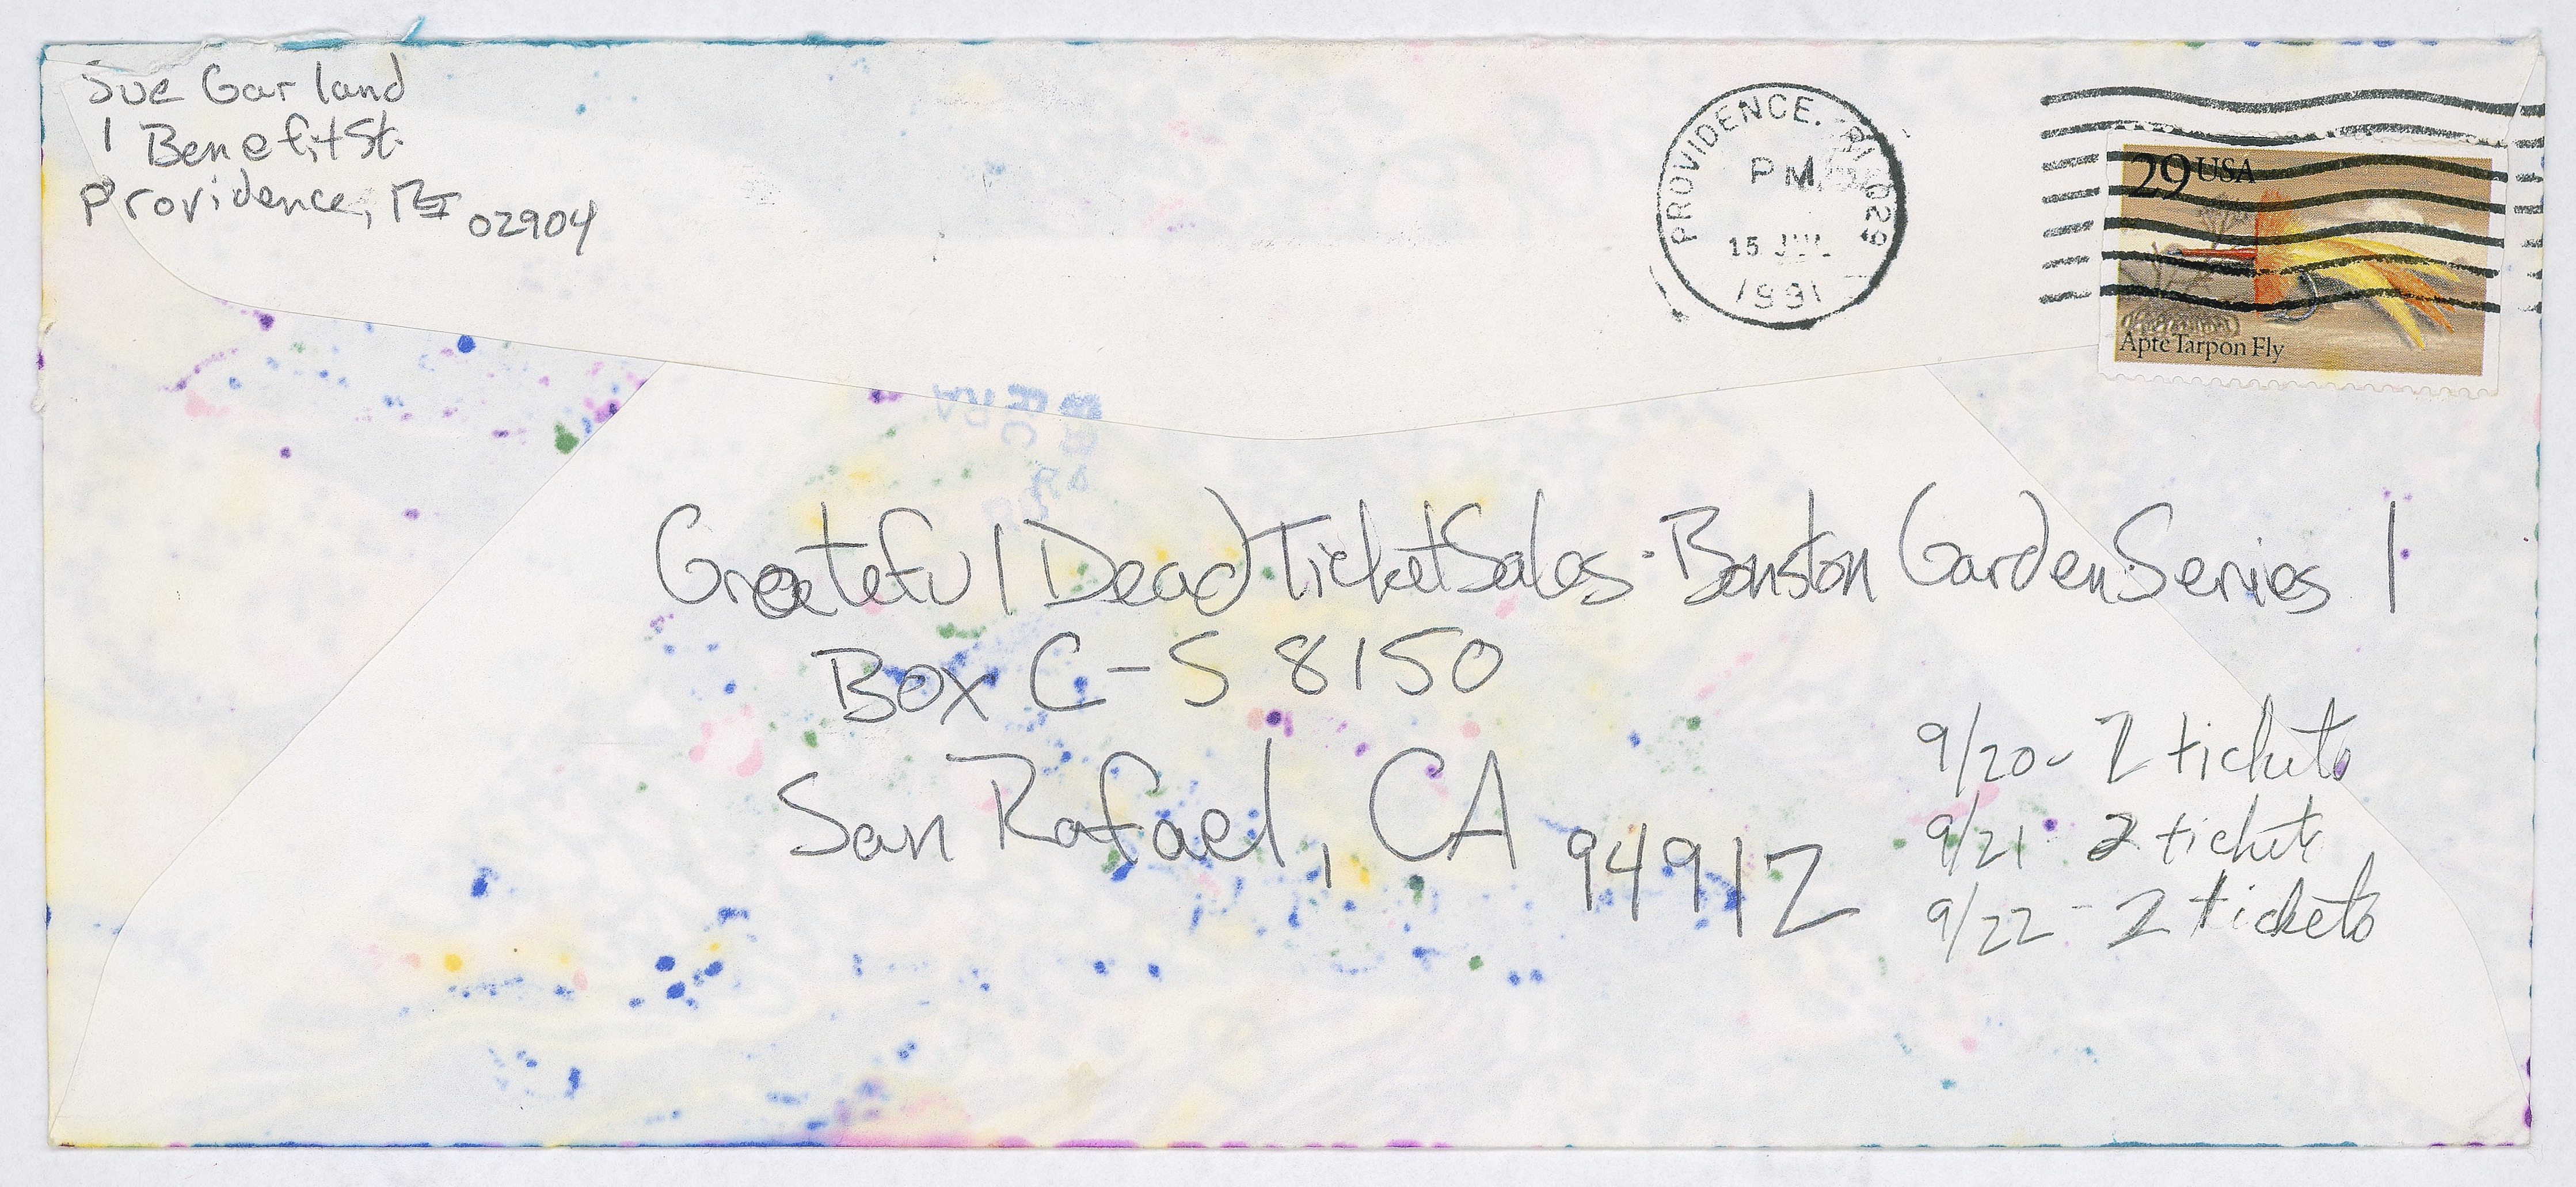 Sue Garland
1 Benefit St.
Providence, RI 02904
PROVIDENCE, RI 029
PM
15 JUL
1991
29 USA
Apte Tarpon Fly
Greateful Dead Ticket Sales · Bonston Garden Series 1
Box C-S 8150
San Rafael, CA 94912
9/20 - 2 tickets
9/21 - 2 tickets
9/22 - 2 tickets